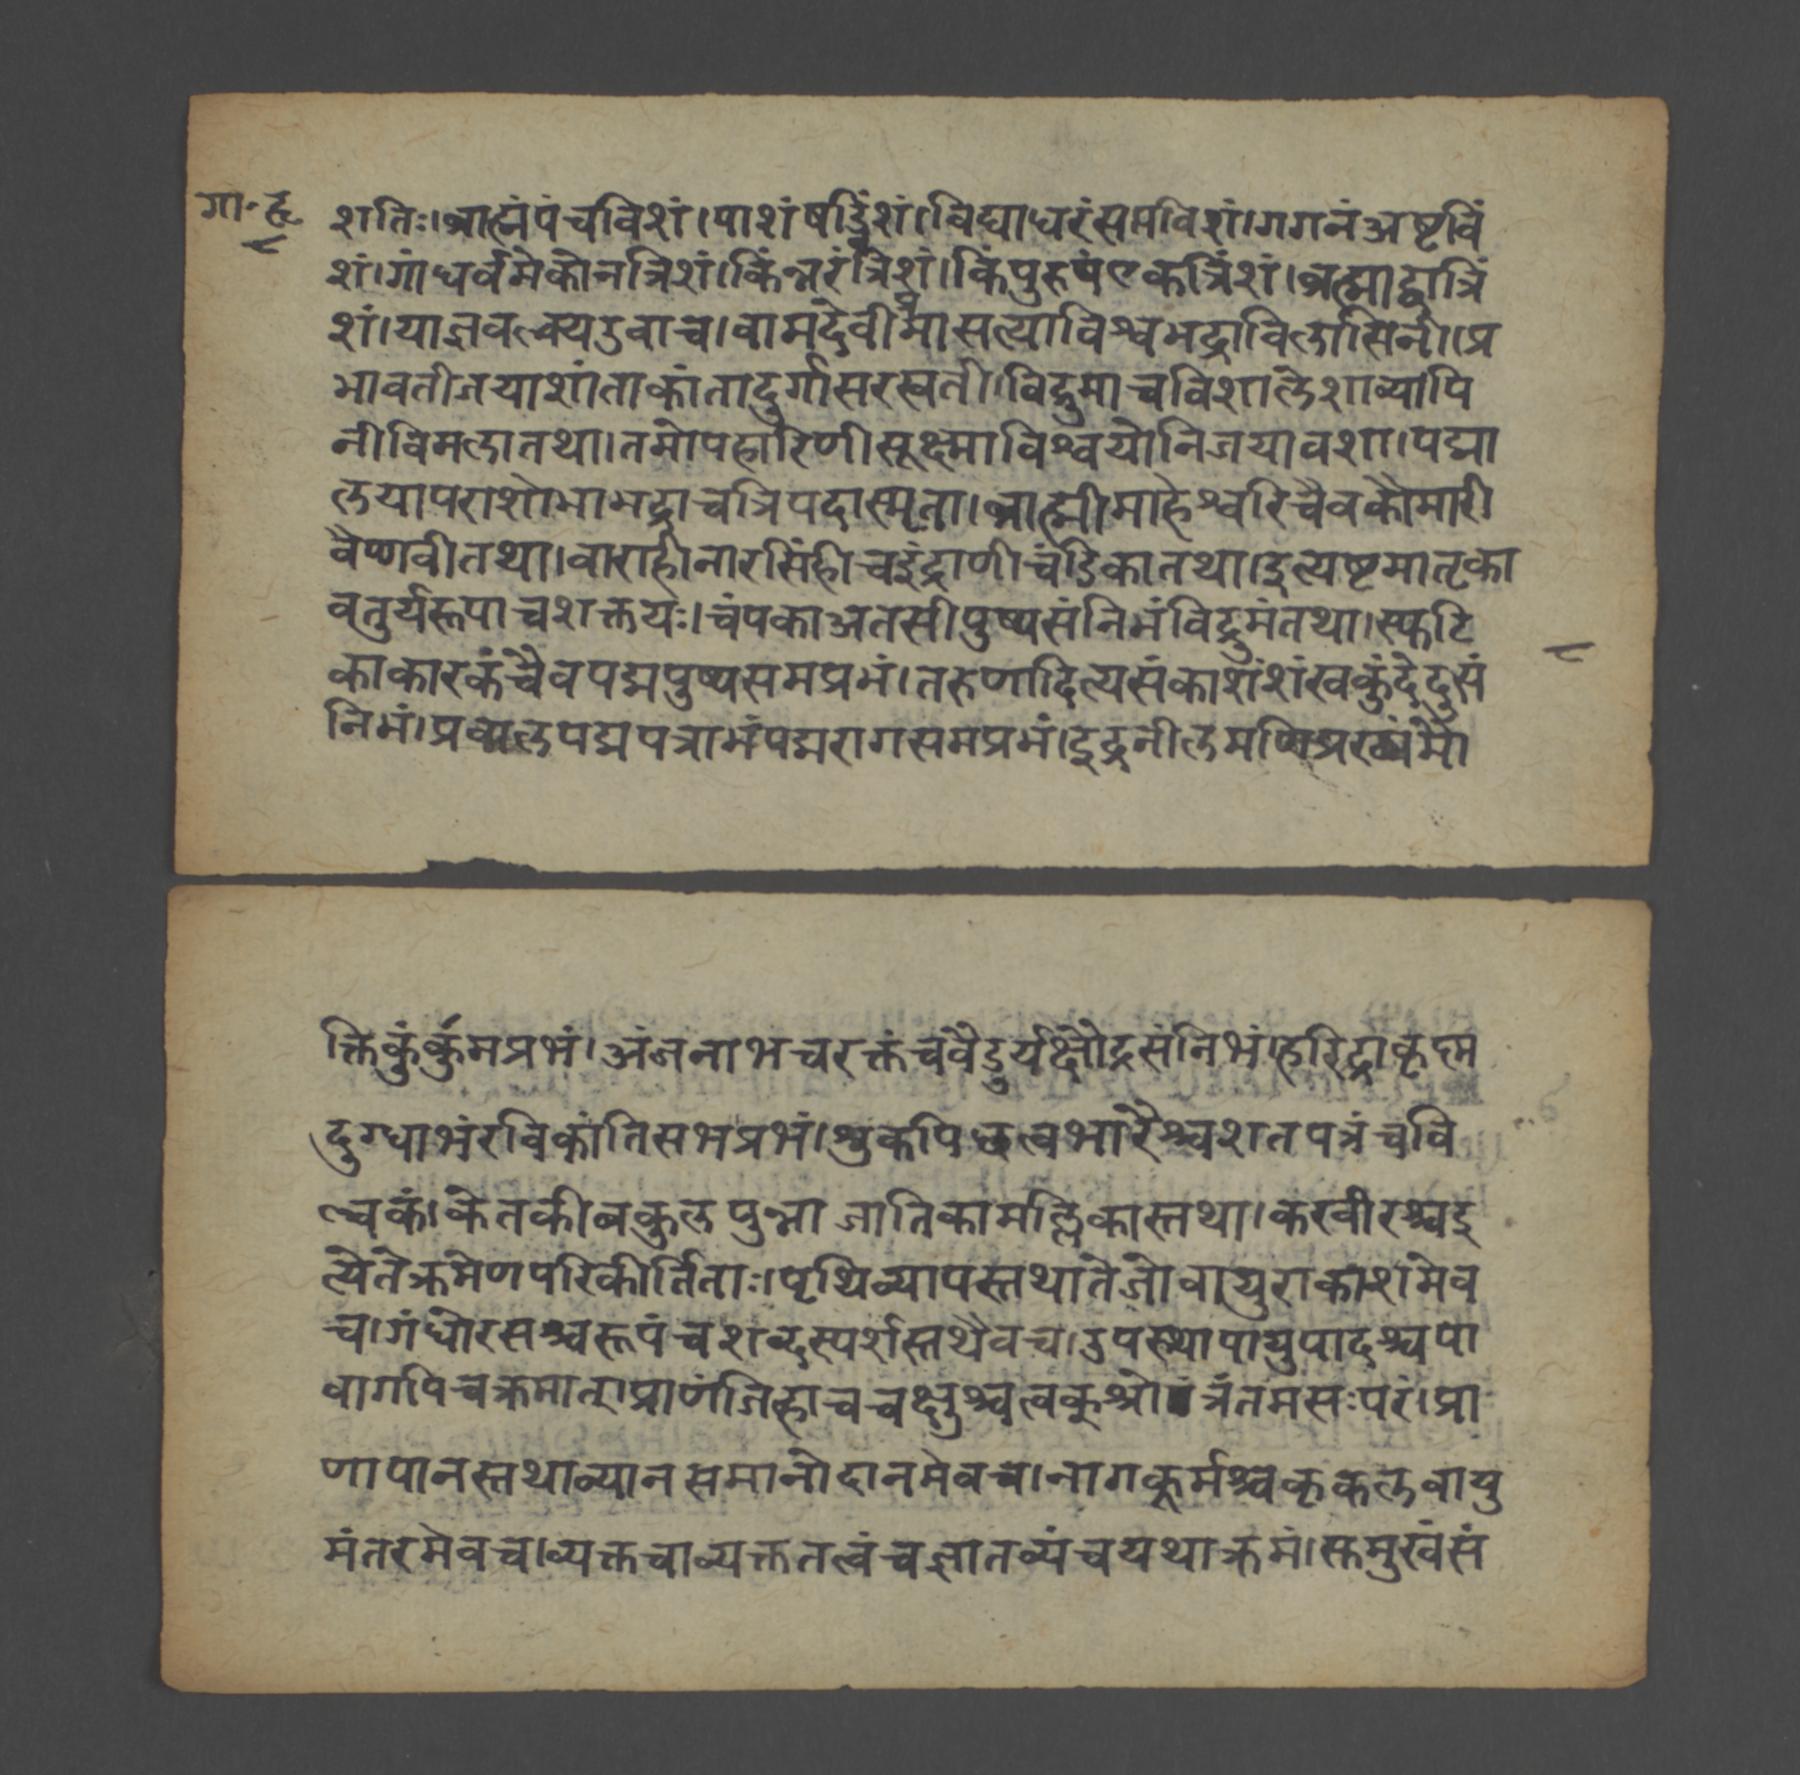 गा॰हृ
८
शतिः।ब्राह्मंपंचविशं।पाशंषड्विंशं।विद्याधरंसप्तविशं।गगनंअष्टविं
शं।गांधर्वमेकोनत्रिशं।किंन्नरंत्रिशं।किंपुरुषंएकत्रिंशं।ब्रह्माद्वात्रिं
शं।याज्ञवल्क्यउवाच।वामदेवीप्रभासत्याविश्वभद्राविलासिनी।प्र
भावतीजयाशांताकांतादुर्गासरस्वती।विद्रुमाचविशालेशाव्यापि
नीविमलातथा।तमोपहारिणीसूक्ष्माविश्वयोनिजयावशा।पद्मा
लयापराशोभाभद्राचत्रिपदास्मृता।ब्राह्मीमाहेश्वरिचैवकौमारी
वैष्णवीतथा।वाराहीनारसिंहीचइंद्राणीचंडिकातथा।इत्यष्टमातृका
वतुर्यरूपाचशक्तयः।चंपकाअतसीपुष्पसंनिभंविद्रुमंतथा।स्फटि
८
काकारकंचैवपद्मपुष्पसमप्रभं।तरुणादित्यसंकाशंशंखकुंदेंदुसं
निभं।प्रवालपद्मपत्राभंपद्मरागसमप्रभं।इंद्रनीलमणिप्रख्यंमौ
क्तिकुंकुंमप्रभं।अंजनाभचरक्तंचवैडुर्यक्षौद्रसंनिभं।हरिद्राकृष्ण
दुग्धाभंरविकांतिसभप्रभं।शुकपिछत्वभारैश्चशतपत्रंचवि
ल्वकं।केतकीबकुलपुन्नाजातिकामल्लिकास्तथा।करवीरश्चइ
त्येतेक्रमेणपरिकीर्तिताः।पृथिव्यापस्तथातेजोवायुराकाशमेव
च।गंधोरसश्चरूपंचशब्दस्पर्शस्तथैवच।उपस्थापायुपादश्चपा
वागपिचक्रमात्।प्राणंजिह्वाचचक्षुश्चत्वक्श्रोत्रंतमसःपरं।प्रा
णापानस्तथाव्यानसमानोदानमेवच।नागकूर्मश्चकृकलवायु
मंतरमेवच।व्यक्तचाव्यक्ततत्वंचज्ञातव्यंचयथाक्रमं।स्तमुखंसं